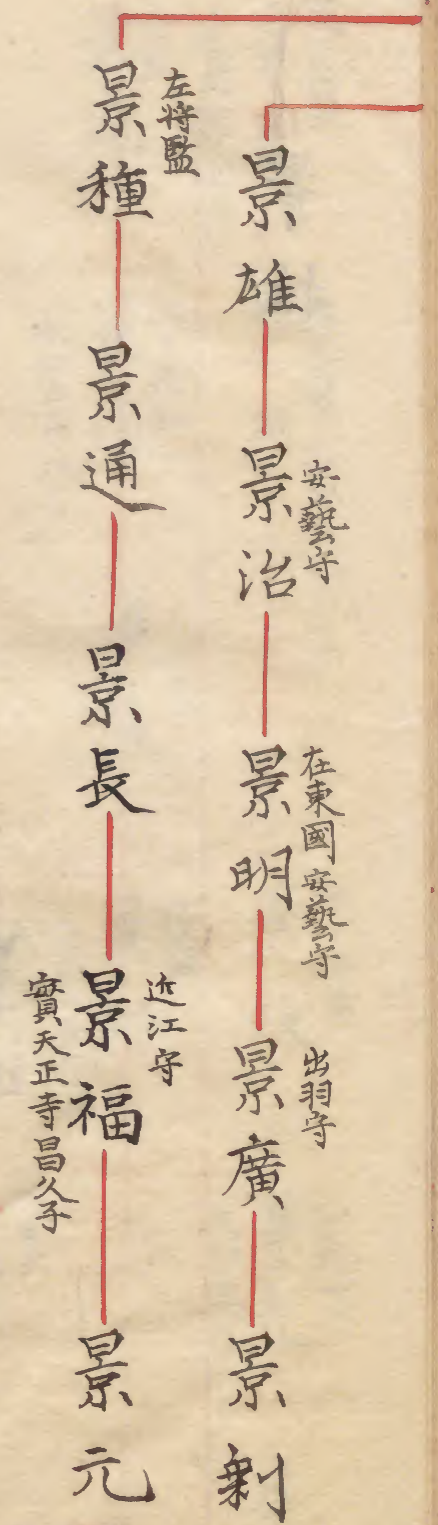 景雄
景治
安藝守
景明
在東國安藝守
景廣
出羽守
景剰
景種
左将監
景通
景長
景福
近江守
實天正寺昌久子
景元